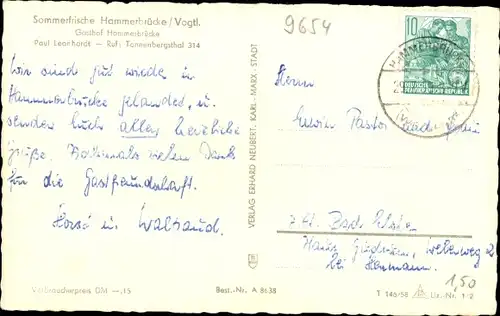 Sommerfrische Hammerbrücke/Vogtl.
Gasthof Hammerbrücke
Paul Leonhardt - Ruf: Tannenbergsthal 314
9654
Wir sind gut wieder in
Hammerbrücke gelandet, u.
senden Euch alles herzliche
Grüße. Nochmals vielen Dank
für die Gastfreundschaft.
Horst u. Waltraud.
Verbraucherpreis DM -.15
Best.-Nr. A 8638
VERLAG ERHARD NEUBERT, KARL-MARX-STADT
10
DEUTSCHE
DEMOKRATISCHE REPUBLIK
HAMMERBRÜCKE
Herrn
Erwin Pastor
z. Zt. Bad
Haus Gudrun, Weberweg 2
bei
1,50
T 146/58
Liz.-Nr. 1-2